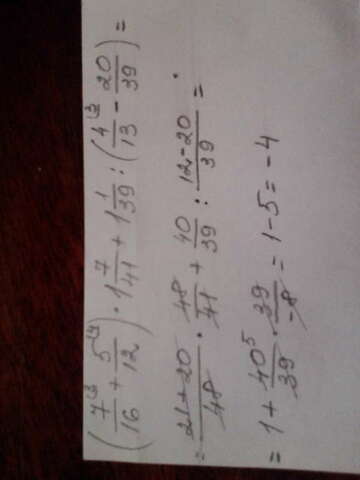 (7/16 ⁽³ + 5/12 ⁽⁴) · 1 7/41 + 1 1/39 : (4/13 ⁽³ - 20/39) =
= (21+20)/48 · 48/41 + 40/39 : (12-20)/39 =
= 1 + 40⁵/39 · 39/-8 = 1-5 = -4